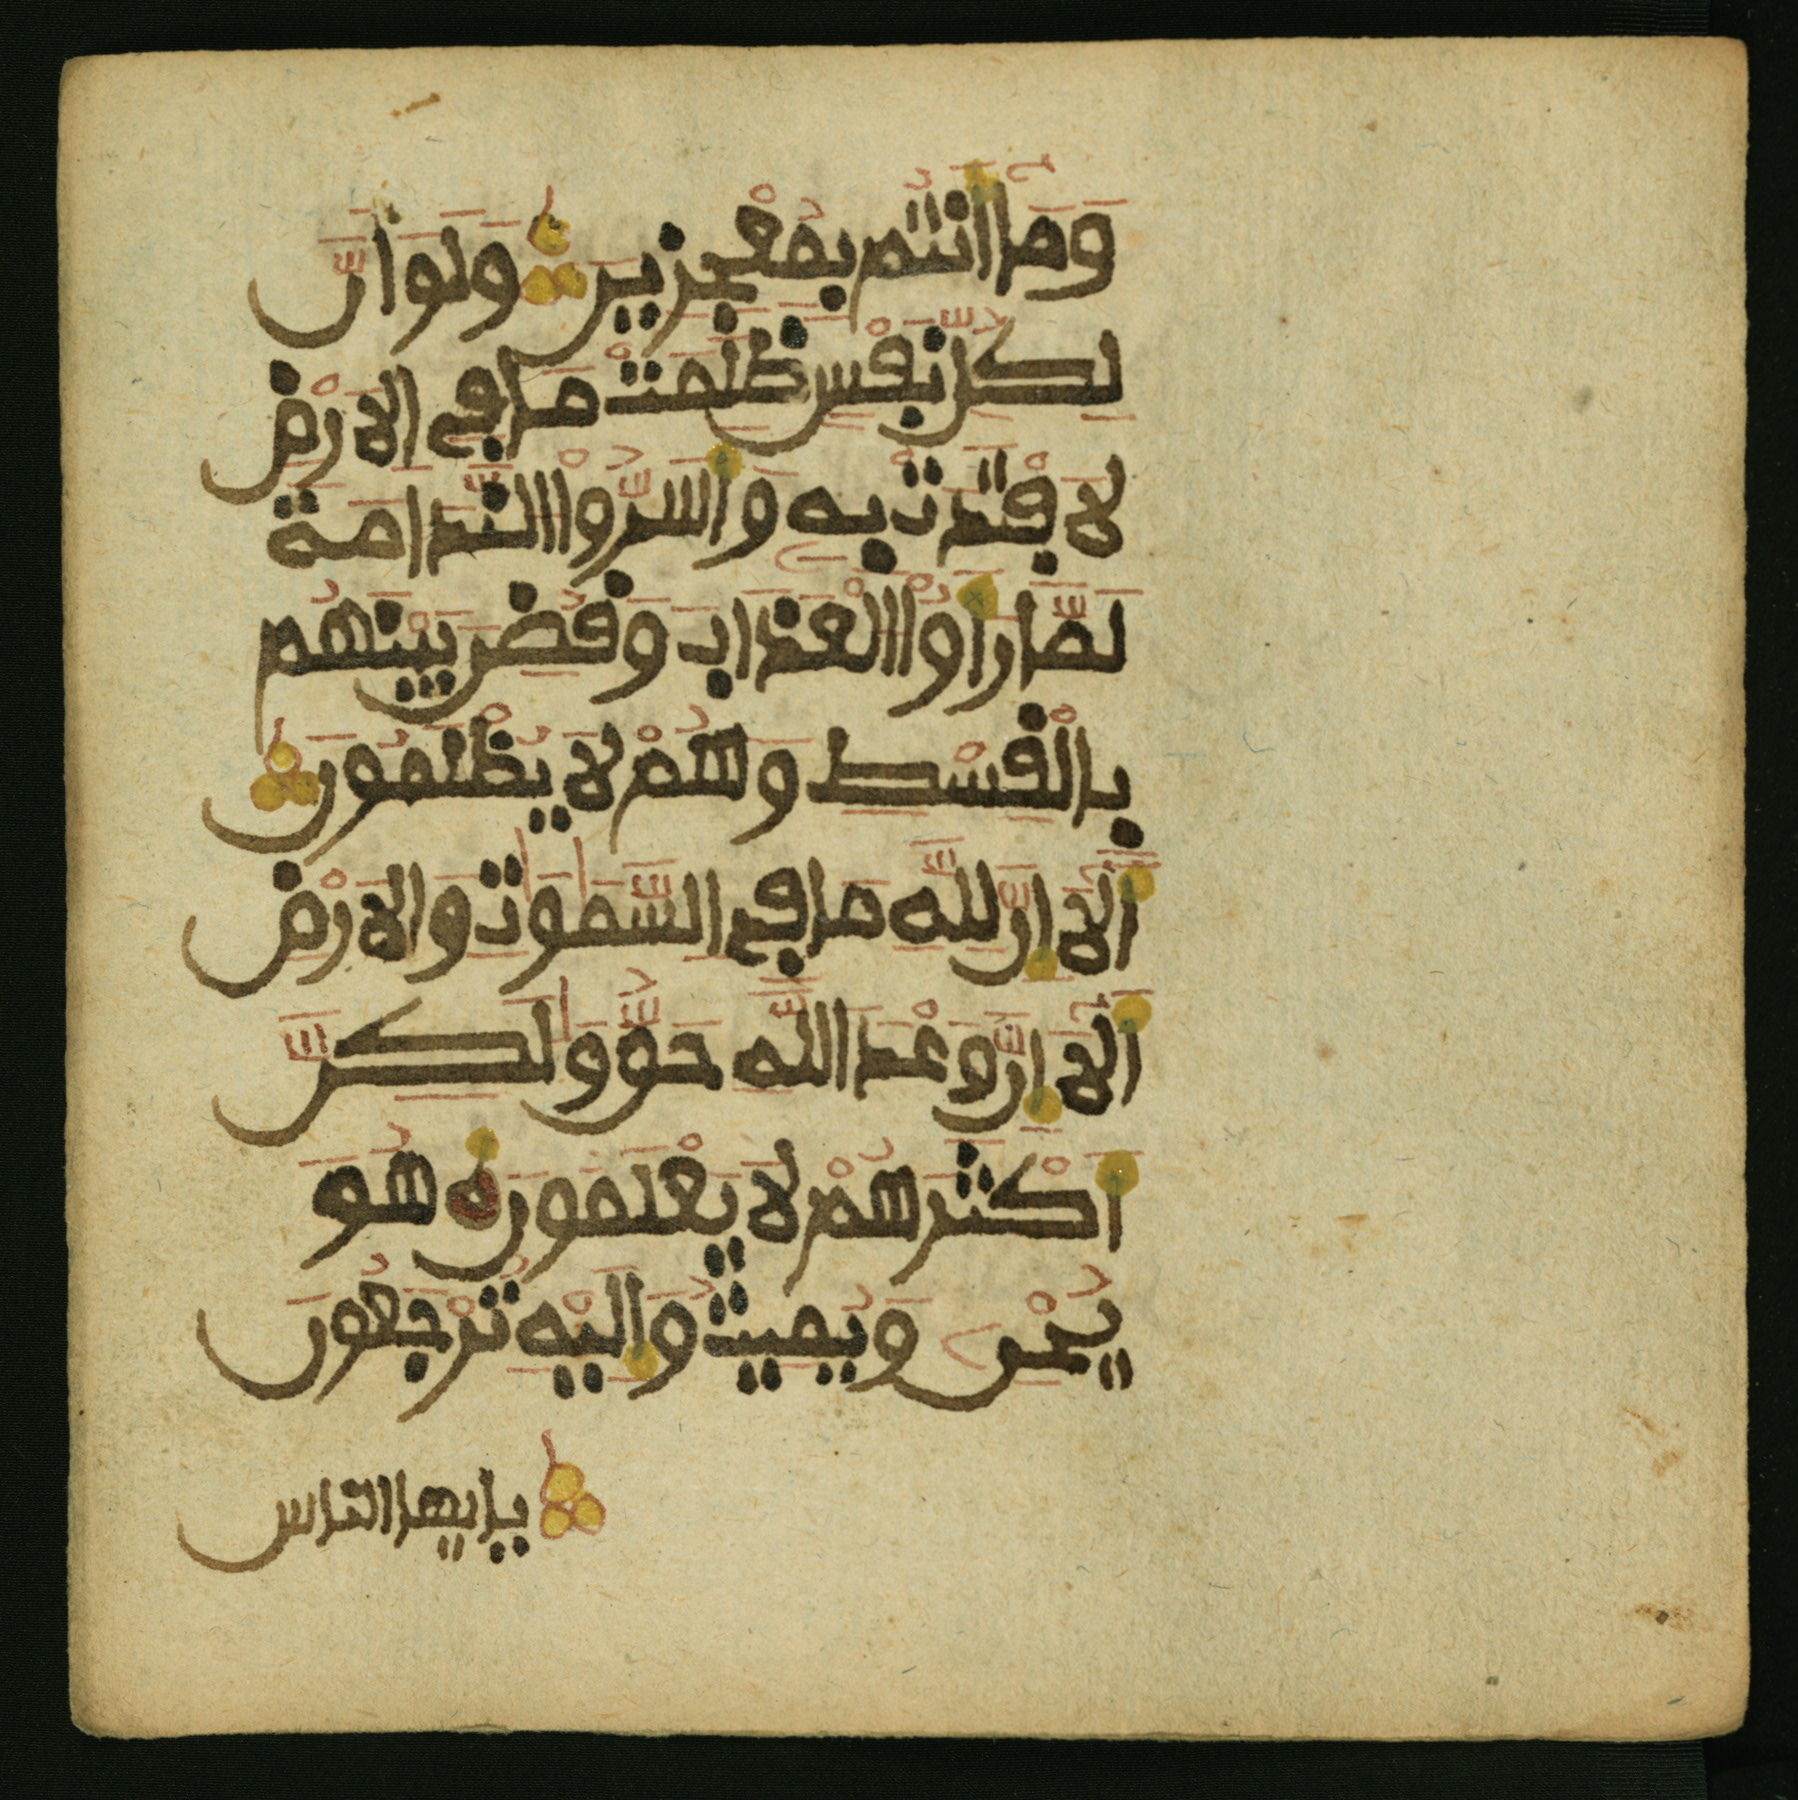 وَمَا أَنتُم بِمُعْجِزِينَ وَلَوَ انَّ
لِكُلِّ نَفْسٍ ظَلَمَتْ مَا فِي الَارْضِ
لَافْتَدَتْ بِهِ وَأَسَرُّواْ النَّدَامَةَ
لَمَّا رَأَوُاْ الْعَذَابَ وَقُضِيَ بَيْنَهُم
بِالْقِسْطِ وَهُمْ لَا يُظْلَمُونَ
أَلَا إِنَّ لِلَّهِ مَا فِي السَّمَٰوَٰتِ وَالَارْضِ
أَلَا إِنَّ وَعْدَ اللَّهِ حَقٌّ وَلَٰكِنَّ
أَكْثَرَهُمْ لَا يَعْلَمُونَ هُوَ
يُحْيِ وَيُمِيتُ وَإِلَيْهِ تُرْجَعُونَ
يايها الناس